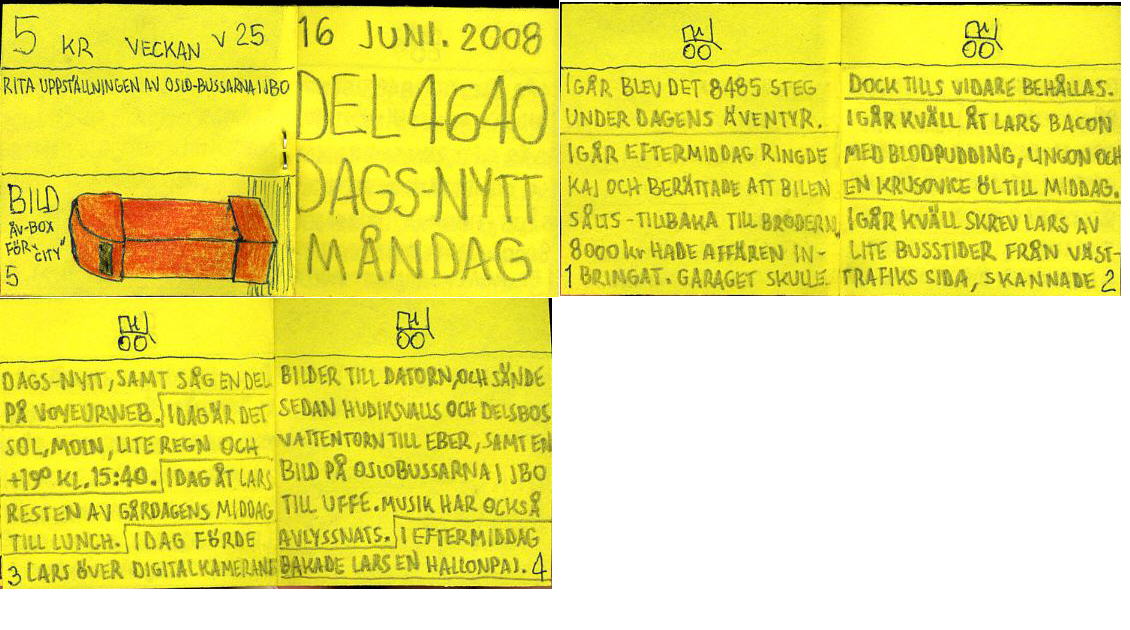 5 KR VECKAN V 25
RITA UPPSTÄLLNINGEN AV OSLO-BUSSARNA I JBO
BILD
AV-BOX
FÖR
"CITY"
5
16 JUNI. 2008
DEL 4640
DAGS-NYTT
MÅNDAG
IGÅR BLEV DET 8485 STEG
UNDER DAGENS ÄVENTYR.
IGÅR EFTERMIDDAG RINGDE
KAJ OCH BERÄTTADE ATT BILEN
SÅLTS - TILBAKA TILL BRODERN,
8000 kr HADE AFFÄREN IN-
1 BRINGAT. GARAGET SKULLE
DOCK TILLS VIDARE BEHÅLLAS.
IGÅR KVÄLL ÅT LARS BACON
MED BLODPUDDING, LINGON OCH
EN KRUSOVICE ÖL TILL MIDDAG.
IGÅR KVÄLL SKREV LARS AV
LITE BUSSTIDER FRÅN VÄST-
TRAFIKS SIDA, SKANNADE 2
DAGS-NYTT, SAMT SÅG EN DEL
PÅ VOYEURWEB. IDAG ÄR DET
SOL, MOLN, LITE REGN OCH
+19° KL. 15:40. IDAG ÅT LARS
RESTEN AV GÅRDAGENS MIDDAG
TILL LUNCH. IDAG FÖRDE
3 LARS ÖVER DIGITALKAMERANS
BILDER TILL DATORN, OCH SÄNDE
SEDAN HUDIKSVALLS OCH DELSBOS
VATTENTORN TILL EBER, SAMT EN
BILD PÅ OSLOBUSSARNA I JBO
TILL UFFE. MUSIK HAR OCKSÅ
AVLYSSNATS. I EFTERMIDDAG
BAKADE LARS EN HALLONPAJ. 4